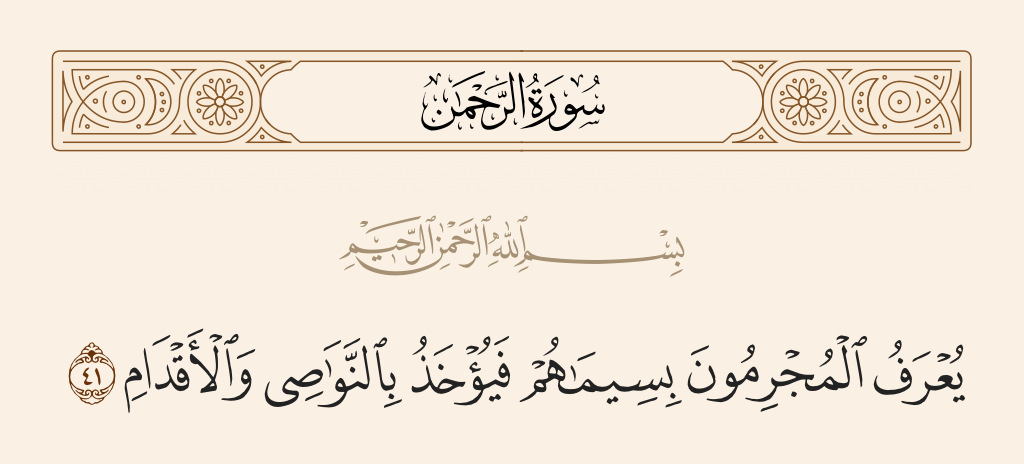 سُورَةُ الرَّحْمَٰن
بِسْمِ ٱللَّهِ ٱلرَّحْمَٰنِ ٱلرَّحِيمِ
يُعْرَفُ ٱلْمُجْرِمُونَ بِسِيمَٰهُمْ فَيُؤْخَذُ بِٱلنَّوَٰصِى وَٱلْأَقْدَامِ ٤١